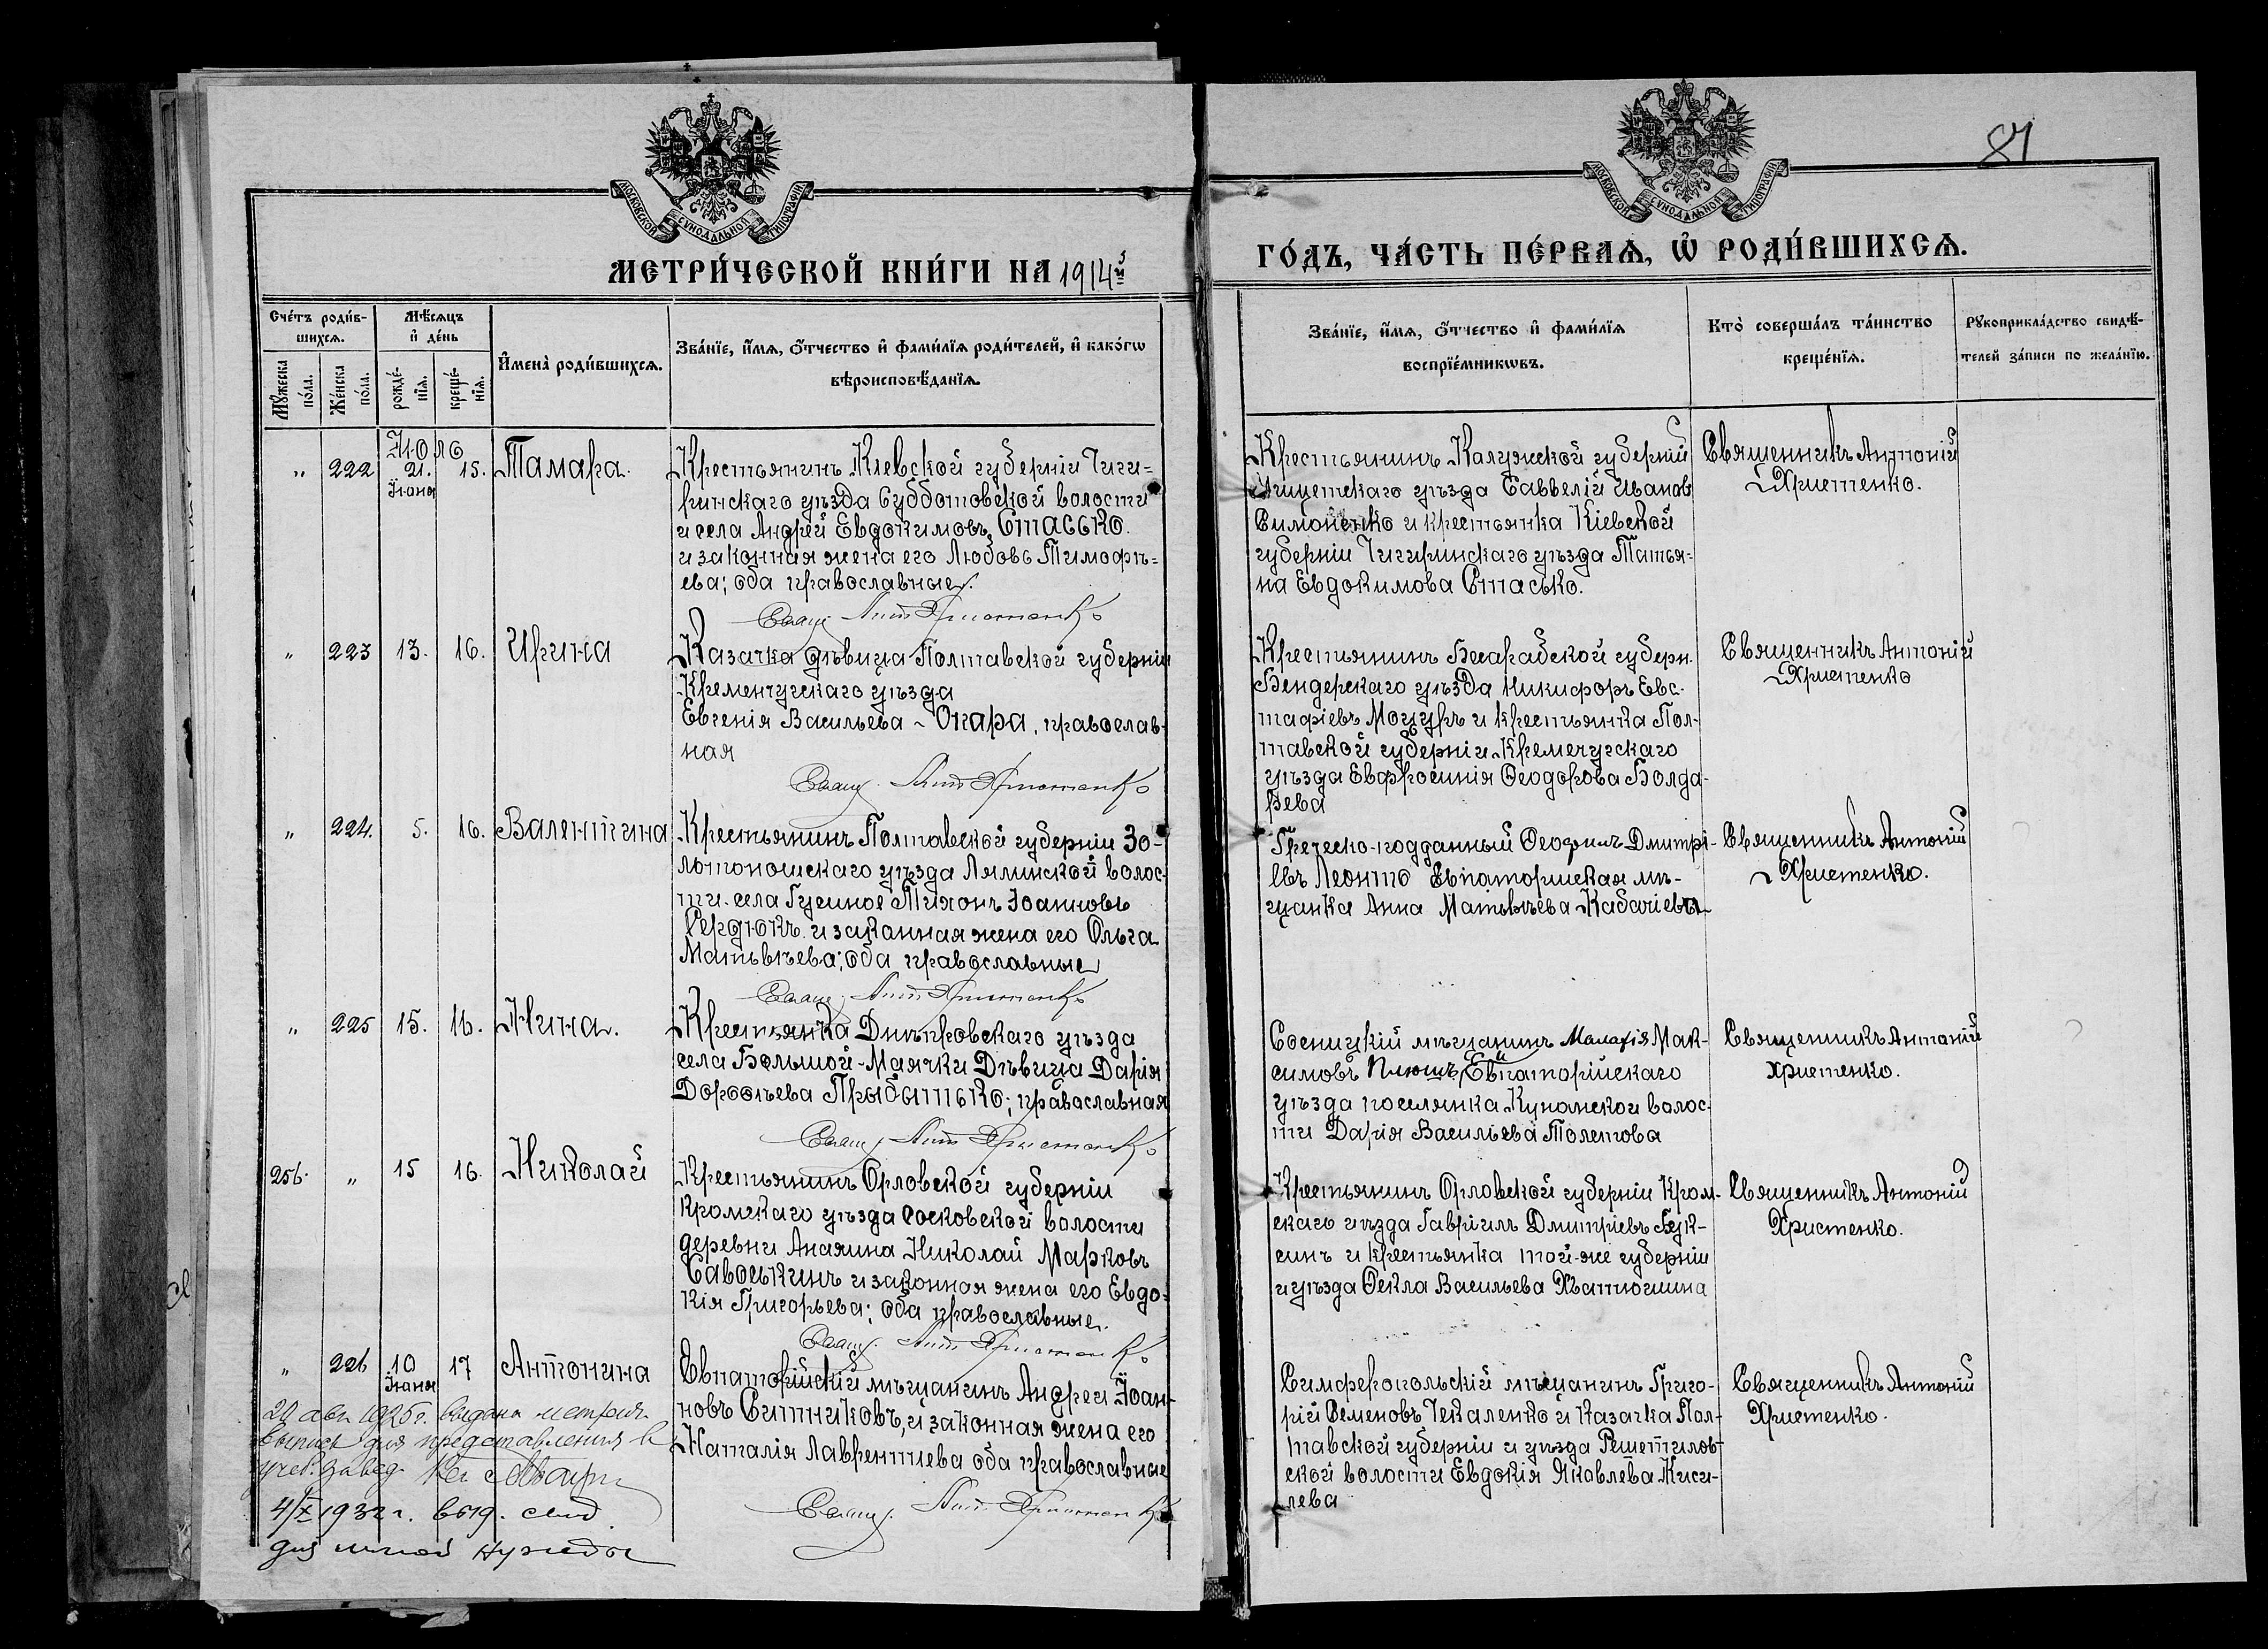 81
МОСКОВСКОЙ СУНОДАЛЬНОЙ ТИПОГРАФІИ
МОСКОВСКОЙ СУНОДАЛЬНОЙ ТИПОГРАФІИ
МЕТРИ́ЧЕСКОЙ КНИ́ГИ НА 1914й
ГО́ДЪ, ЧА́СТЬ ПЕ́РВАѦ, Ѽ РОДИ́ВШИХСѦ.
Сче́тъ роди́в-
шихсѧ.
Мꙋжеска по́ла.
Же́нска по́ла.
Мѣ́сѧцъ
и҆ де́нь
рожде́-
нїѧ.
креще́-
нїѧ.
И҆мена̀ роди́вшихсѧ.
Зва́нїе, и҆́мѧ, ѻ҆́тчество и҆ фами́лїѧ роди́телей, и҆ како́гѡ
вѣроисповѣ́данїѧ.
Зва́нїе, и҆́мѧ, ѻ҆́тчество и҆ фами́лїѧ
воспрїе́мникѡвъ.
Кто̀ соверша́лъ та́инство
креще́нїѧ.
Рꙋкоприкла́дство свидѣ́-
телей за́писи по жела́нїю.
Июль
„ 222 21. Іюня 15. Тамара.
Крестьянинъ Кіевской губерніи Чиги-
ринскаго уѣзда Субботовской волости
и села Андрей Евдокимовъ Стасько.
и законная жена его Любовь Тимофѣ-
ева; оба православные.
Свящ. Ант. Христенко
Крестьянинъ Калужской губерніи
уѣзда Саввелій Иванов
Симоненко и крестьянка Кіевской
губерніи Чигиринскаго уѣзда Татья-
на Евдокимова Стасько.
Священникъ Антоній
Христенко.
„ 223 13. 16. Ирина
Казачка дѣвица Полтавской губерніи
Кременчугскаго уѣзда
Евгенія Васильева - Опара, православ-
ная
Свящ. Ант. Христенко
Крестьянинъ Бесарабской губерн.
Бендерскаго уѣзда Никифоръ Евс-
тафіевъ Моцуръ и крестьянка Пол-
тавской губерніи Кремечугскаго
уѣзда Евфросинія Ѳеодорова Болда-
рева
Священникъ Антоній
Христенко
„ 224. 5. 16. Валентина
Крестьянинъ Полтавской губерніи Зо-
лотоношскаго уѣзда Лялинской волос-
ти села Гусиное Тихонъ Іоанновъ
Сердюкъ и законная жена его Ольга
Матвѣева; оба православные
Свящ. Ант. Христенко
Греческо-подданный Дмитрі-
евъ Леонто Евпаторийская мѣ-
щанка Анна Матвѣева
Священникъ Антоній
Христенко.
„ 225 15. 16. Нина.
Крестьянка Днѣпровскаго уѣзда
села Большой-Маячки Дѣвица Дарія
Дороѳѣева Прыбытько; православная
Свящ. Ант. Христенко
Сосницкій мѣщанинъ Малахія Мак-
симовъ Плющъ, Евпаторійскаго
уѣзда поселянка волос-
ти Дарія Васильева Толстова
Священникъ Антоній
Христенко.
256. „ 15 16. Николай
Крестьянинъ Орловской губерніи
Кромскаго уѣзда Сосковской волости
деревни Николай Марковъ
Савоськинъ и законная жена его Евдо-
кія Григорьева; оба православные.
Свящ. Ант. Христенко
Крестьянинъ Орловской губерніи Кром-
скаго уѣзда Гавріилъ Дмитріевъ Бук-
синъ и крестьянка той-же губерніи
и уѣзда Ѳекла Васильева
Священникъ Антоній
Христенко.
„ 226 10 Іюня 17 Антонина
Евпаторійскій мѣщанинъ Андрей Іоан-
новъ Ситниковъ, и законная жена его
Наталія Лаврентіева оба православные
Свящ. Ант. Христенко
Симферопольскій мѣщанинъ Григо-
рій Семеновъ Чекаленко и казачка Пол-
тавской губерніи и уѣзда Решетилов-
ской волости Евдокія Яковлева Киси-
лева
Священникъ Антоній
Христенко.
20 авг. 1925 г. выдана метрич.
выпись для представления в
учеб. завед.
4/X 1932 г. выд. свид.
для личной нужды